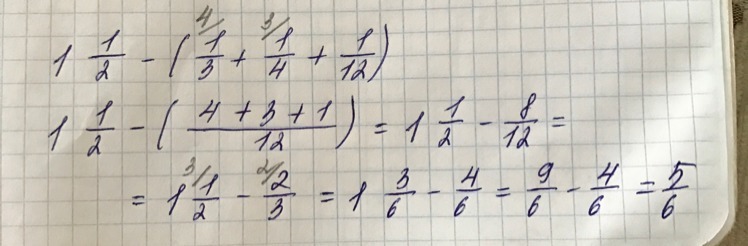 1 1/2 - ( ⁴⁄ 1/3 + ³⁄ 1/4 + 1/12 )
1 1/2 - ( (4 + 3 + 1)/12 ) = 1 1/2 - 8/12 =
= 1 ³⁄ 1/2 - ²⁄ 2/3 = 1 3/6 - 4/6 = 9/6 - 4/6 = 5/6